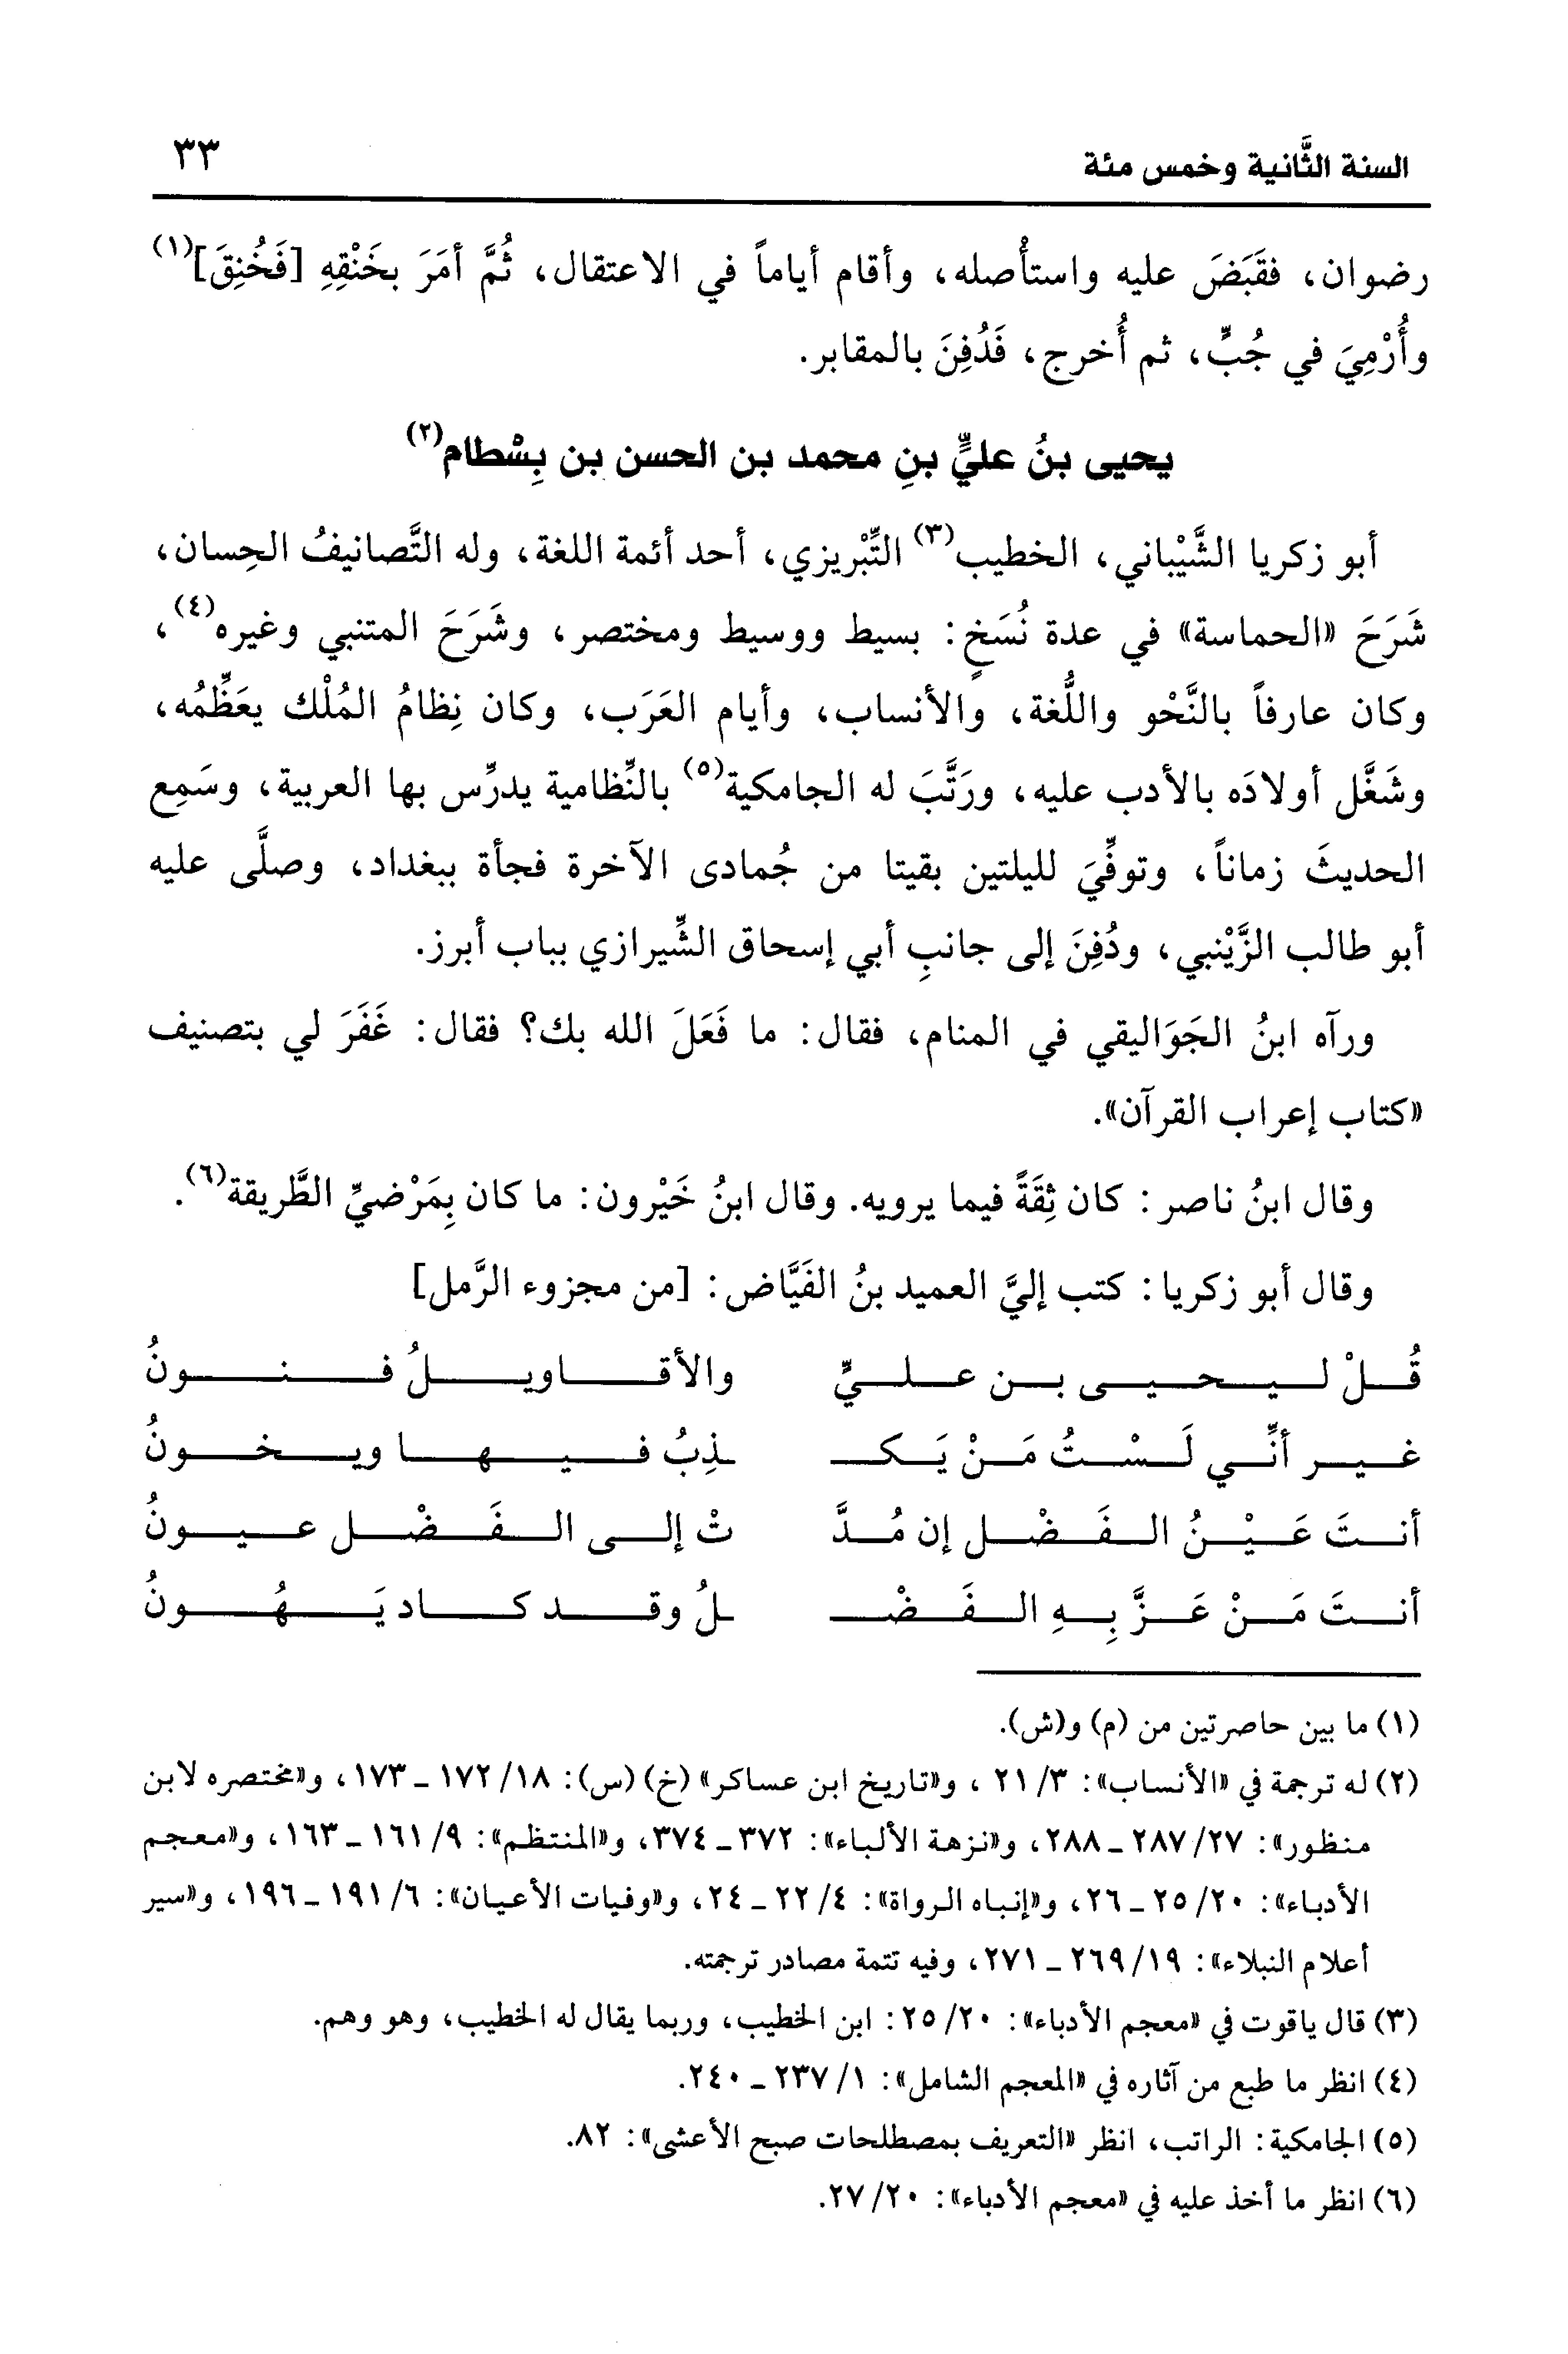 السنة الثَّانية وخمس مئة ٣٣
رضوان، فقَبَضَ عليه واستأْصله، وأقام أياماً في الاعتقال، ثُمَّ أمَرَ بخَنْقِهِ [فَخُنِقَ](١)
وأُرْمِيَ في جُبٍّ، ثم أُخرج، فَدُفِنَ بالمقابر.
يحيى بنُ عليِّ بنِ محمد بن الحسن بن بِسْطام(٢)
أبو زكريا الشَّيْباني، الخطيب(٣) التِّبْريزي، أحد أئمة اللغة، وله التَّصانيفُ الحِسان،
شَرَحَ «الحماسة» في عدة نُسَخٍ: بسيط ووسيط ومختصر، وشَرَحَ المتنبي وغيره(٤)،
وكان عارفاً بالنَّحْو واللُّغة، والأنساب، وأيام العَرَب، وكان نِظامُ المُلْك يعَظِّمُه،
وشَغَّل أولادَه بالأدب عليه، ورَتَّبَ له الجامكية(٥) بالنِّظامية يدرِّس بها العربية، وسَمِع
الحديثَ زماناً، وتوفِّيَ لليلتين بقيتا من جُمادى الآخرة فجأة ببغداد، وصلَّى عليه
أبو طالب الزَّيْنبي، ودُفِنَ إلى جانبِ أبي إسحاق الشِّيرازي بباب أبرز.
ورآه ابنُ الجَوَاليقي في المنام، فقال: ما فَعَلَ الله بك؟ فقال: غَفَرَ لي بتصنيف
«كتاب إعراب القرآن».
وقال ابنُ ناصر: كان ثِقَةً فيما يرويه. وقال ابنُ خَيْرون: ما كان بِمَرْضيِّ الطَّريقة(٦).
وقال أبو زكريا: كتب إليَّ العميد بنُ الفَيَّاض: [من مجزوء الرَّمل]
قُلْ ليحيى بن عليٍّ والأقاويلُ فنونُ
غير أنِّي لَسْتُ مَنْ يَكـ ـذِبُ فيها ويخونُ
أنتَ عَيْنُ الفَضْل إن مُدَّ تْ إلى الفَضْل عيونُ
أنتَ مَنْ عَزَّ بِهِ الفَضْـ ـلُ وقد كاد يَهُونُ
(١) ما بين حاصرتين من (م) و(ش).
(٢) له ترجمة في «الأنساب»: ٣/ ٢١ ، و«تاريخ ابن عساكر» (خ) (س): ١٨/ ١٧٢ ـ ١٧٣، و«مختصره لابن
منظور»: ٢٧/ ٢٨٧ ـ ٢٨٨، و«نزهة الألباء»: ٣٧٢ ـ ٣٧٤، و«المنتظم»: ٩/ ١٦١ ـ ١٦٣، و«معجم
الأدباء»: ٢٠/ ٢٥ ـ ٢٦، و«إنباه الرواة»: ٤/ ٢٢ ـ ٢٤، و«وفيات الأعيان»: ٦/ ١٩١ ـ ١٩٦، و«سير
أعلام النبلاء»: ١٩/ ٢٦٩ ـ ٢٧١، وفيه تتمة مصادر ترجمته.
(٣) قال ياقوت في «معجم الأدباء»: ٢٠/ ٢٥: ابن الخطيب، وربما يقال له الخطيب، وهو وهم.
(٤) انظر ما طبع من آثاره في «المعجم الشامل»: ١/ ٢٣٧ ـ ٢٤٠.
(٥) الجامكية: الراتب، انظر «التعريف بمصطلحات صبح الأعشى»: ٨٢.
(٦) انظر ما أخذ عليه في «معجم الأدباء»: ٢٠/ ٢٧.